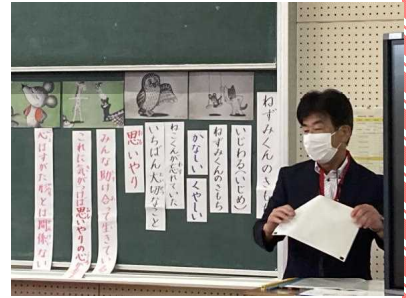 ねずみくんのきもち
いじわる(いじめ)
ねずみくんのきもち
かなしい くやしい
ねこくんが忘れていた
いちばん大切なこと
思いやり
みんな助け合って生きている
これに気がつけば思いやりの心
心はすがた形とは関係ない